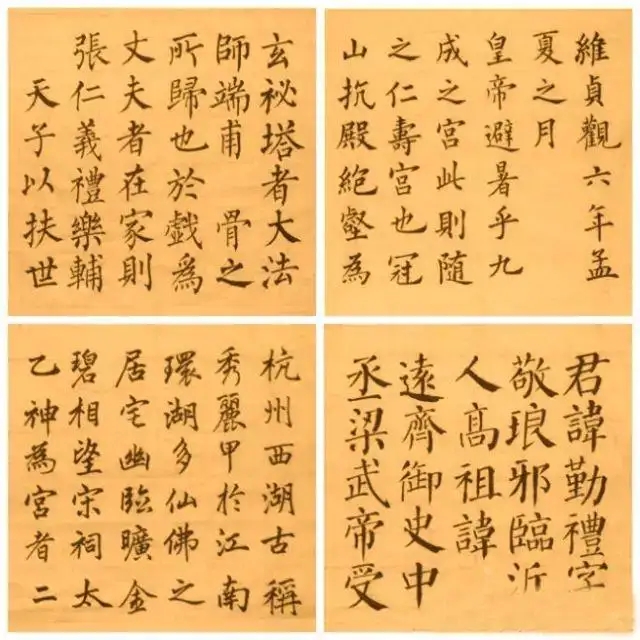 玄祕塔者大法
師端甫 骨之
所歸也於戲爲
丈夫者在家則
張仁義禮樂輔
天子以扶世
維貞觀六年孟
夏之月
皇帝避暑乎九
成之宮此則随
之仁壽宮也冠
山抗殿絕壑為
杭州西湖古稱
秀麗甲於江南
環湖多仙佛之
居宅幽臨曠金
碧相望宋祠太
乙神為宮者二
君諱勤禮字
敬琅邪臨沂
人高祖諱
遠齊御史中
丞梁武帝受